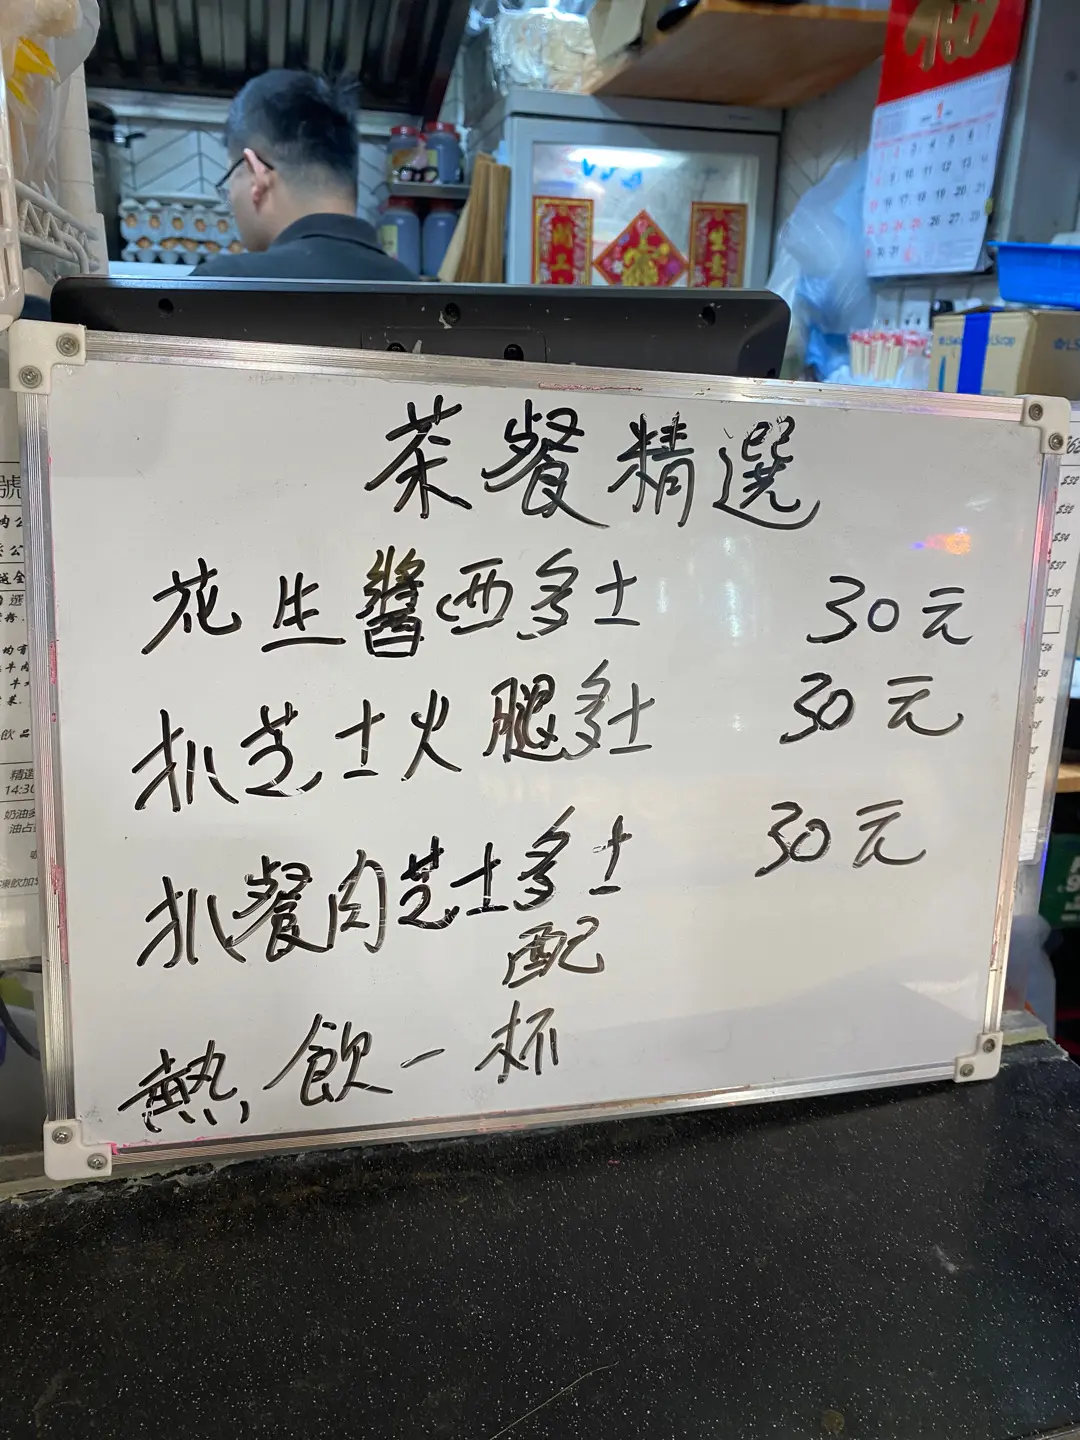 茶餐精選
花生醬西多士 30元
扒芝士火腿多士 30元
扒餐肉芝士多士 30元
配
熱飲一杯
號
精選
14:30
飲品
生意